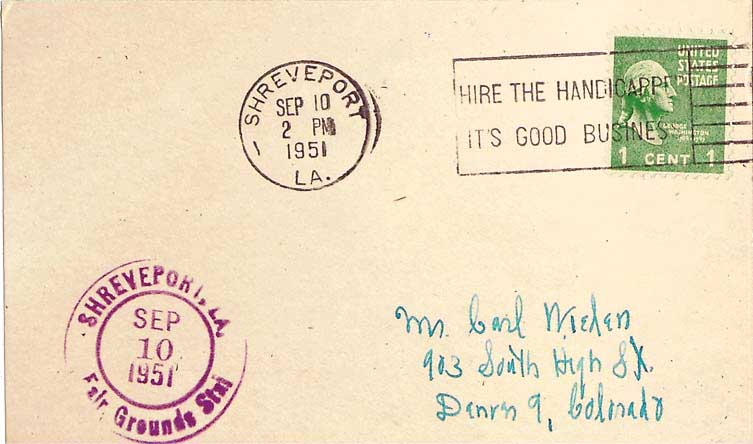 SHREVEPORT
SEP 10
2 PM
1951
LA.
HIRE THE HANDICAPPE
IT'S GOOD BUSINES
UNITED
STATES
POSTAGE
GEORGE
WASHINGTON
1 CENT 1
SHREVEPORT, LA.
SEP
10
1951
Fair Grounds Sta
Mr. Carl
903 South High St.
Denver 9, Colorado